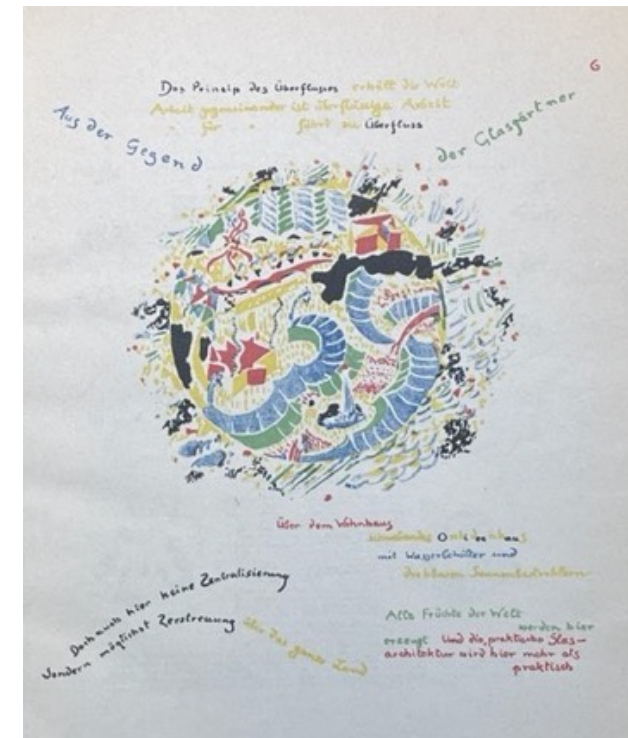 6
Das Prinzip des Überflusses erhält die Welt
Arbeit gegeneinander ist überflüssige Arbeit
" für " führt zu Überfluss
Aus der Gegend
der Glasgärtner
Über dem Wohnhaus
mit Wasserbehälter und
drehbaren
Doch auch hier keine Zentralisierung
Sondern möglichst Zerstreuung über das ganze Land
Alle Früchte der Welt
werden hier
erzeugt Und die „praktische Glas-
architektur wird hier mehr als
praktisch